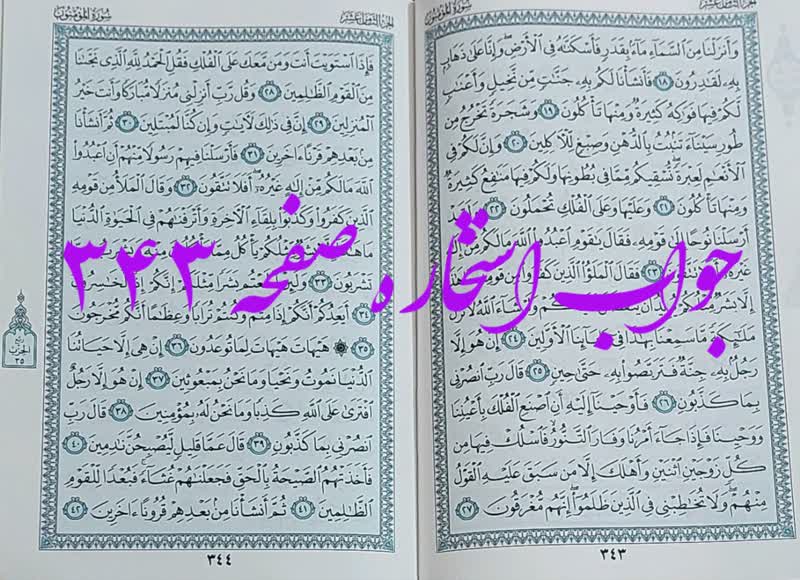 الجزء الثامن عشر
سورة المؤمنون
وَأَنزَلْنَا مِنَ ٱلسَّمَآءِ مَآءًۢ بِقَدَرٍ فَأَسْكَنَّٰهُ فِى ٱلْأَرْضِ ۖ وَإِنَّا عَلَىٰ ذَهَابٍۭ
بِهِۦ لَقَٰدِرُونَ ١٨ فَأَنشَأْنَا لَكُم بِهِۦ جَنَّٰتٍ مِّن نَّخِيلٍ وَأَعْنَٰبٍ
لَّكُمْ فِيهَا فَوَٰكِهُ كَثِيرَةٌ وَمِنْهَا تَأْكُلُونَ ١٩ وَشَجَرَةً تَخْرُجُ مِن
طُورِ سَيْنَآءَ تَنۢبُتُ بِٱلدُّهْنِ وَصِبْغٍ لِّلْءَاكِلِينَ ٢٠ وَإِنَّ لَكُمْ فِى
ٱلْأَنْعَٰمِ لَعِبْرَةً ۖ نُّسْقِيكُم مِّمَّا فِى بُطُونِهَا وَلَكُمْ فِيهَا مَنَٰفِعُ كَثِيرَةٌ
وَمِنْهَا تَأْكُلُونَ ٢١ وَعَلَيْهَا وَعَلَى ٱلْفُلْكِ تُحْمَلُونَ ٢٢ وَلَقَدْ
أَرْسَلْنَا نُوحًا إِلَىٰ قَوْمِهِۦ فَقَالَ يَٰقَوْمِ ٱعْبُدُوا۟ ٱللَّهَ مَا لَكُم مِّنْ إِلَٰهٍ
غَيْرُهُۥٓ ٢٣ فَقَالَ ٱلْمَلَؤُا۟ ٱلَّذِينَ كَفَرُوا۟ مِن قَوْمِهِۦ
إِلَّا بَشَرٌ مِّثْلُكُمْ يُرِيدُ أَن شَآءَ ٱللَّهُ لَأَنزَلَ
مَلَٰٓئِكَةً مَّا سَمِعْنَا بِهَٰذَا فِىٓ ءَابَآئِنَا ٱلْأَوَّلِينَ ٢٤ إِنْ هُوَ إِلَّا
رَجُلٌۢ بِهِۦ جِنَّةٌ فَتَرَبَّصُوا۟ بِهِۦ حَتَّىٰ حِينٍ ٢٥ قَالَ رَبِّ ٱنصُرْنِى
بِمَا كَذَّبُونِ ٢٦ فَأَوْحَيْنَآ إِلَيْهِ أَنِ ٱصْنَعِ ٱلْفُلْكَ بِأَعْيُنِنَا
وَوَحْيِنَا فَإِذَا جَآءَ أَمْرُنَا وَفَارَ ٱلتَّنُّورُ ۙ فَٱسْلُكْ فِيهَا مِن
كُلٍّ زَوْجَيْنِ ٱثْنَيْنِ وَأَهْلَكَ إِلَّا مَن سَبَقَ عَلَيْهِ ٱلْقَوْلُ
مِنْهُمْ ۖ وَلَا تُخَٰطِبْنِى فِى ٱلَّذِينَ ظَلَمُوٓا۟ ۖ إِنَّهُم مُّغْرَقُونَ ٢٧
٣٤٣
الجزء الثامن عشر
سورة المؤمنون
فَإِذَا ٱسْتَوَيْتَ أَنتَ وَمَن مَّعَكَ عَلَى ٱلْفُلْكِ فَقُلِ ٱلْحَمْدُ لِلَّهِ ٱلَّذِى نَجَّىٰنَا
مِنَ ٱلْقَوْمِ ٱلظَّٰلِمِينَ ٢٨ وَقُل رَّبِّ أَنزِلْنِى مُنزَلًا مُّبَارَكًا وَأَنتَ خَيْرُ
ٱلْمُنزِلِينَ ٢٩ إِنَّ فِى ذَٰلِكَ لَءَايَٰتٍ وَإِن كُنَّا لَمُبْتَلِينَ ٣٠ ثُمَّ أَنشَأْنَا
مِنۢ بَعْدِهِمْ قَرْنًا ءَاخَرِينَ ٣١ فَأَرْسَلْنَا فِيهِمْ رَسُولًا مِّنْهُمْ أَنِ ٱعْبُدُوا۟
ٱللَّهَ مَا لَكُم مِّنْ إِلَٰهٍ غَيْرُهُۥٓ ۖ أَفَلَا تَتَّقُونَ ٣٢ وَقَالَ ٱلْمَلَأُ مِن قَوْمِهِ
ٱلَّذِينَ كَفَرُوا۟ وَكَذَّبُوا۟ بِلِقَآءِ ٱلْءَاخِرَةِ وَأَتْرَفْنَٰهُمْ فِى ٱلْحَيَوٰةِ ٱلدُّنْيَا
مَا هَٰذَآ مِّثْلُكُمْ يَأْكُلُ مِمَّا مِنْهُ
تَشْرَبُونَ ٣٣ وَلَئِنْ أَطَعْتُم بَشَرًا مِّثْلَكُمْ إِنَّكُمْ إِذًا لَّخَٰسِرُونَ
٣٤ أَيَعِدُكُمْ أَنَّكُمْ إِذَا مِتُّمْ وَكُنتُمْ تُرَابًا وَعِظَٰمًا أَنَّكُم مُّخْرَجُونَ
٣٥ ۞ هَيْهَاتَ هَيْهَاتَ لِمَا تُوعَدُونَ ٣٦ إِنْ هِىَ إِلَّا حَيَاتُنَا
ٱلدُّنْيَا نَمُوتُ وَنَحْيَا وَمَا نَحْنُ بِمَبْعُوثِينَ ٣٧ إِنْ هُوَ إِلَّا رَجُلٌ
ٱفْتَرَىٰ عَلَى ٱللَّهِ كَذِبًا وَمَا نَحْنُ لَهُۥ بِمُؤْمِنِينَ ٣٨ قَالَ رَبِّ
ٱنصُرْنِى بِمَا كَذَّبُونِ ٣٩ قَالَ عَمَّا قَلِيلٍ لَّيُصْبِحُنَّ نَٰدِمِينَ ٤٠
فَأَخَذَتْهُمُ ٱلصَّيْحَةُ بِٱلْحَقِّ فَجَعَلْنَٰهُمْ غُثَآءً ۚ فَبُعْدًا لِّلْقَوْمِ
ٱلظَّٰلِمِينَ ٤١ ثُمَّ أَنشَأْنَا مِنۢ بَعْدِهِمْ قُرُونًا ءَاخَرِينَ ٤٢
٣٤٤
ربع
الحزب
٣٥
جواب استخاره صفحه ۳۴۳